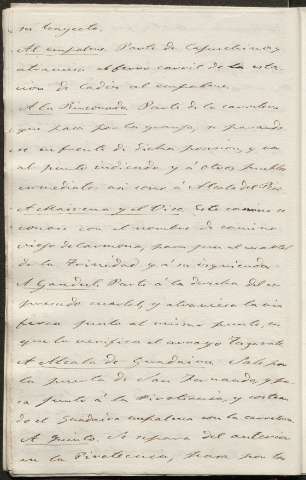 su trayecto.
Al empalme. Parte de Capuchinos y
atraviesa el ferro carril de la esta-
cion de Cadiz al empalme.
A la Rinconada. Parte de la carretera
que pasa por la granja, se
en frente de dicha posesion, y va
al punto indicado y á otros pueblos
inmediatos así como á Alcala del Rio
A Mairena y el Viso. Este camino se
conoce con el nombre de camino
viejo de Carmona, pasa por el cuartel
de la Trinidad y á su izquierda.
A Gandul. Parte á la derecha del es-
presado cuartel, y atraviesa la via
ferrea junto al mismo punto, en
que lo verifica el arroyo Tagarete
A Alcalá de Guadaira. Sale por
la puerta de San Fernando, y pa-
sa junto á la Pirotecnia, y costean-
do el Guadaira empalma con la carretera
A Quinto. Se separa del anterior
en la Pirotecnia, pasa por los